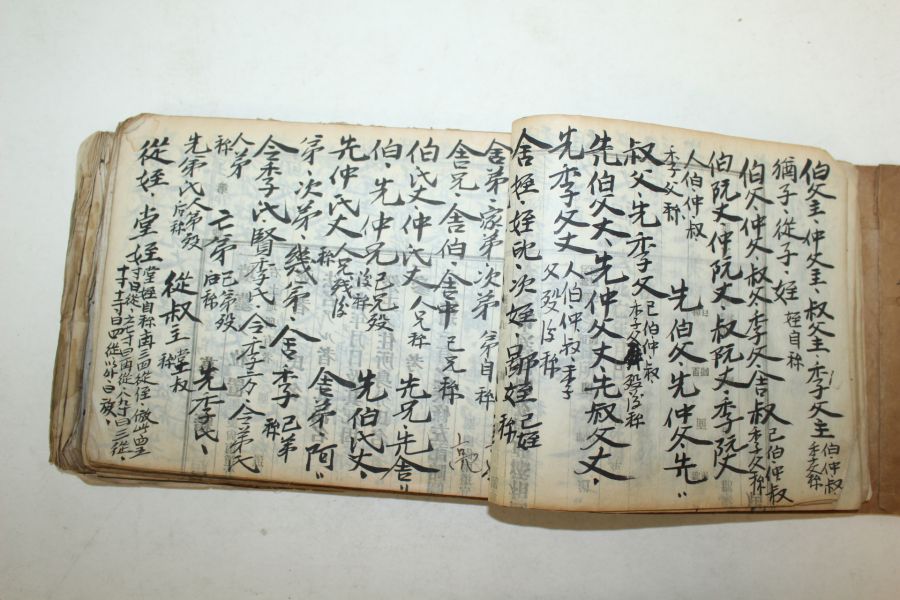 伯父主、仲父主、叔父主、季父主 伯仲叔季父称
猶子、從子、姪 姪自称
伯父仲父叔父季父舍叔 己伯仲叔季父称
伯阮丈、仲阮丈叔阮丈、季阮丈
人伯仲叔季父称 先伯父、先仲父、先〃
叔父、先季父 己伯仲叔季父歿後称
先伯父丈、先仲父丈、先叔父丈、
先季父丈 人伯仲叔季父歿後称
舍姪、姪兒、次姪、鄙姪 己姪称
舍弟、家弟、次弟 弟自称
舍兄、舍伯、舍中 己兄称
伯氏丈仲氏丈 人兄称 先兄、先舍〃
伯、先仲兄 己兄歿後称 先伯氏丈、
先仲氏丈 人兄歿後称 舍弟、阿〃
弟、次弟、幾弟、舍季 己弟称
令季氏賢季氏令季方、令弟氏
人弟称 亡弟 己弟歿后称 先季氏、
先弟氏 人弟歿后称 從叔主 堂叔称
從姪、堂姪